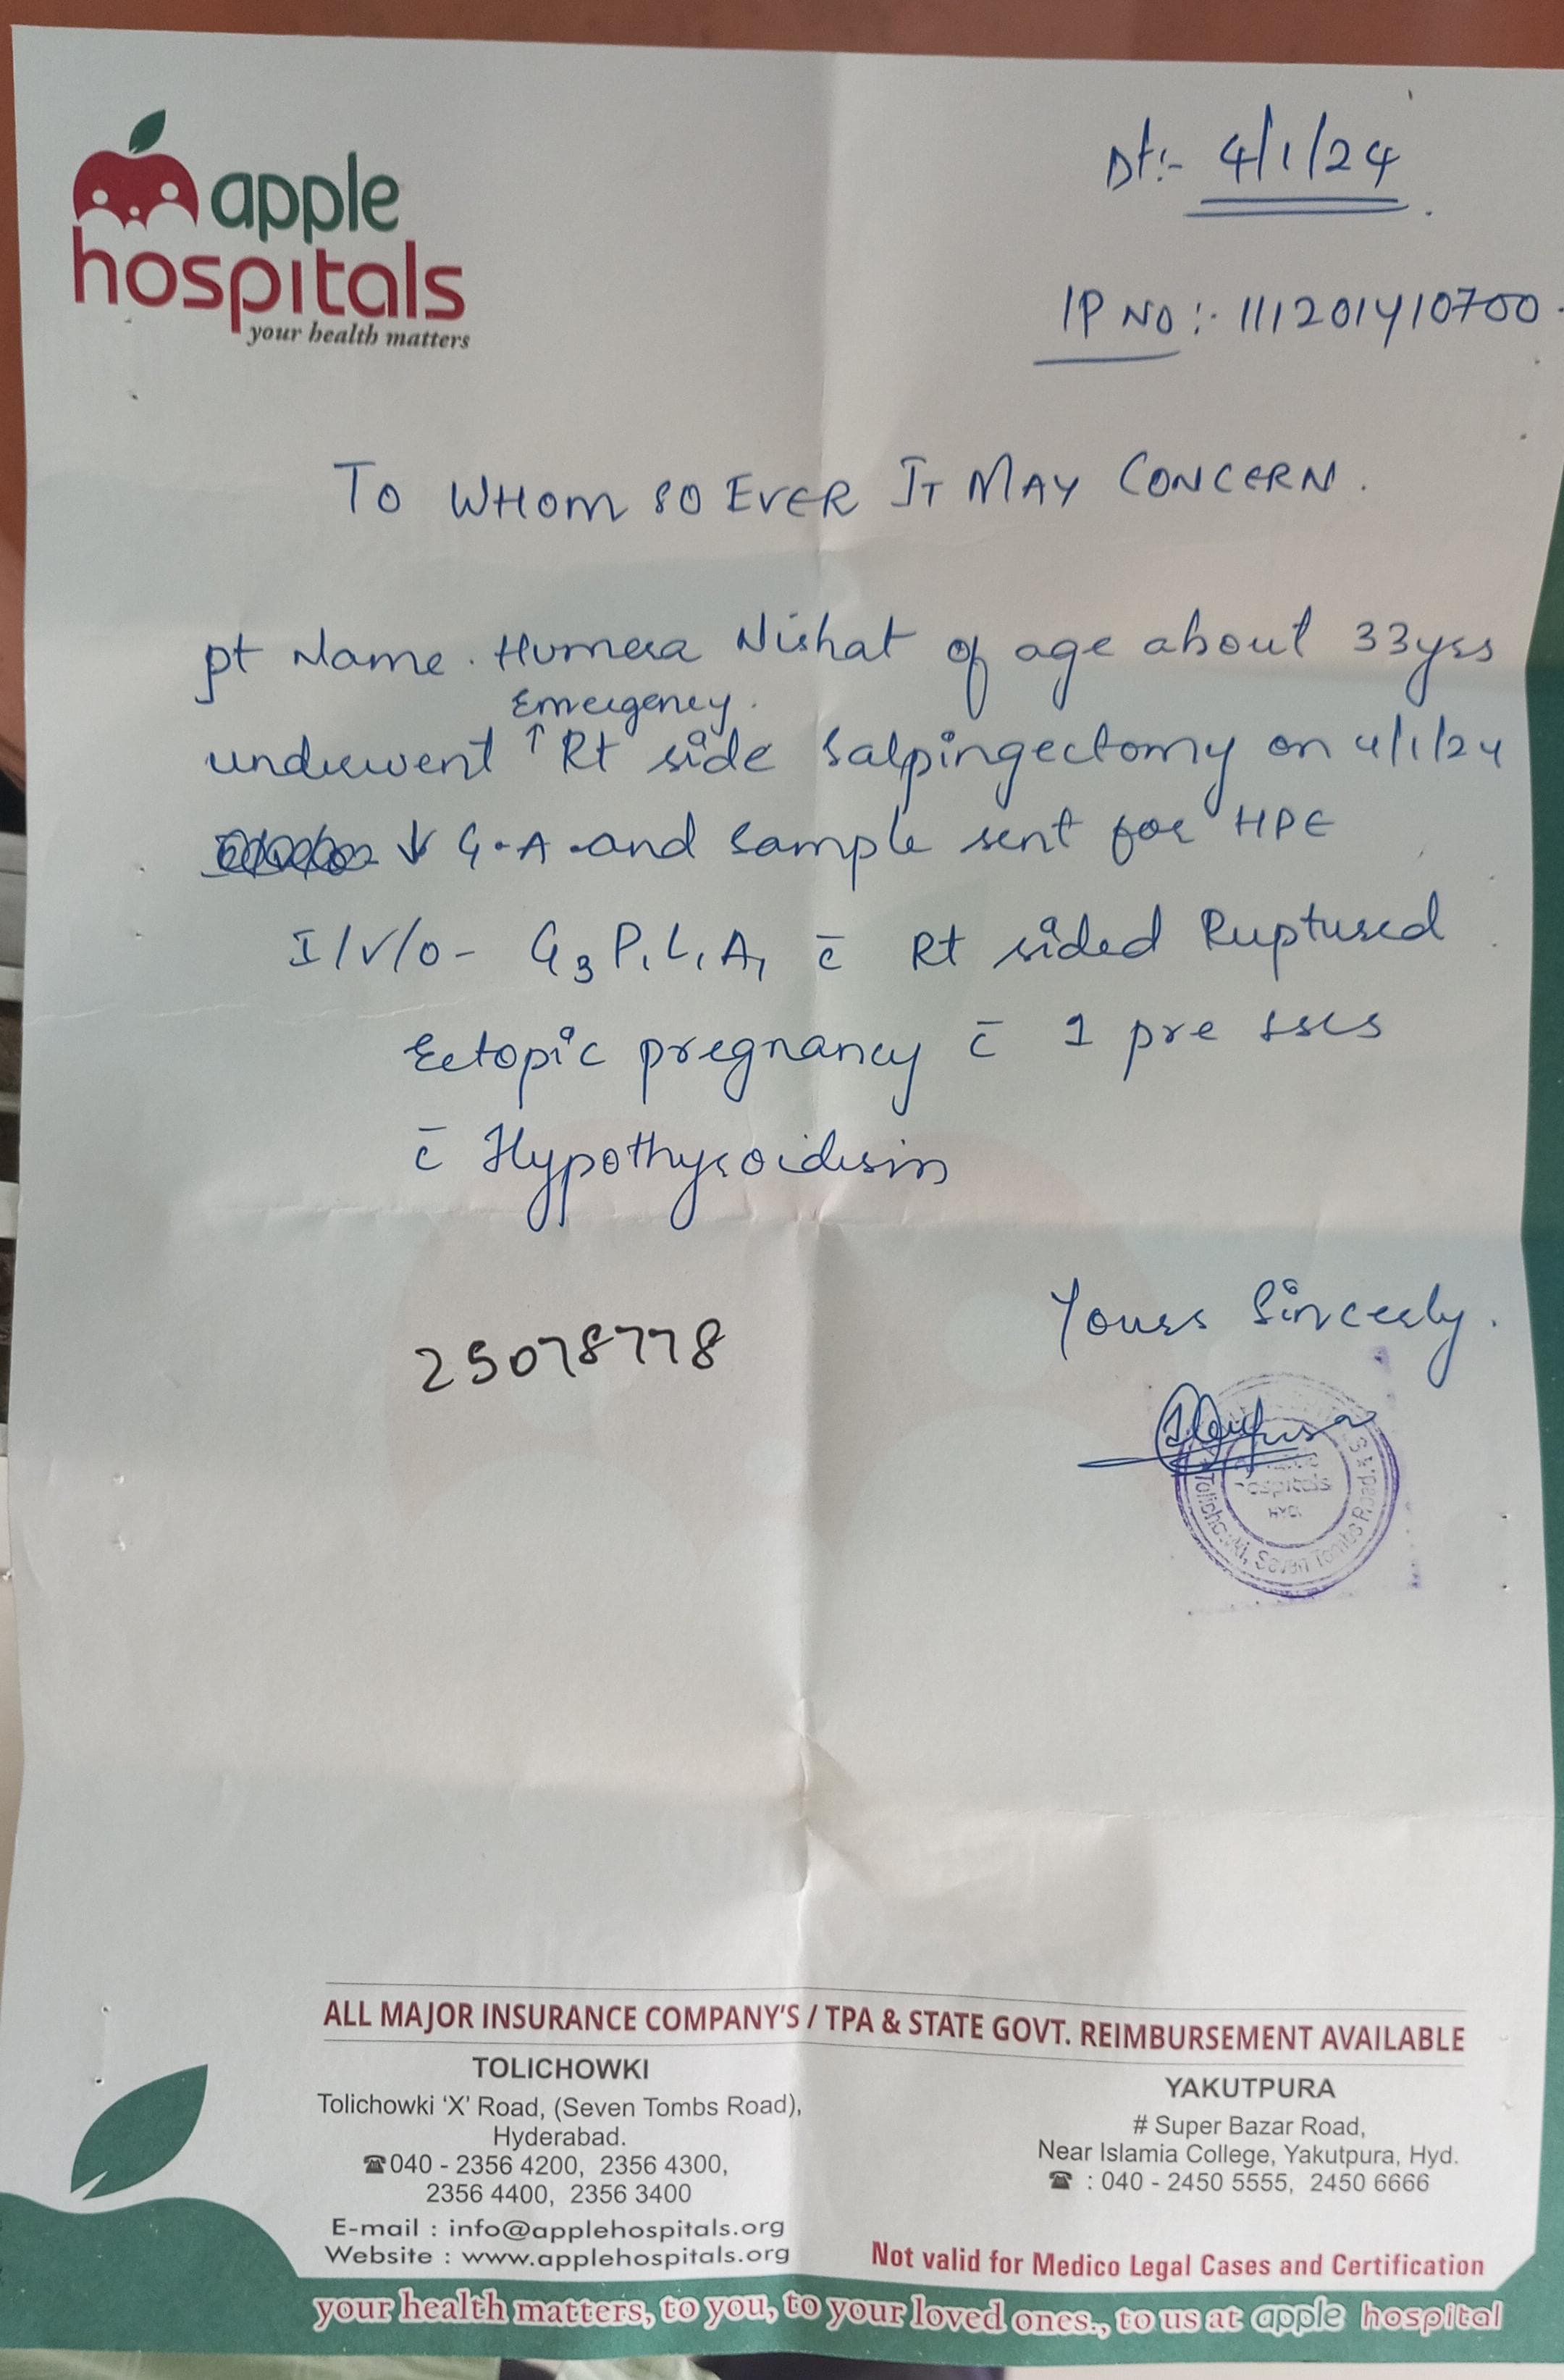 apple
hospitals
your health matters
Dt:- 4/1/24
IP NO :- 111201410700
TO WHOM SO EVER IT MAY CONCERN.
pt Name. Humera Nishat of age about 33yrs
Emergency.
underwent ↑ Rt side Salpingectomy on 4/1/24
↓ G.A. and sample sent for HPE
I/V/O- G3 P1 L1 A1 c̄ Rt sided Ruptured
Ectopic pregnancy c̄ 1 pre LSCS
c̄ Hypothyroidism
Yours Sincerly.
25078778
hospitals
HYD.
Tolichowki, Seven Tombs Road
ALL MAJOR INSURANCE COMPANY'S / TPA & STATE GOVT. REIMBURSEMENT AVAILABLE
TOLICHOWKI
Tolichowki 'X' Road, (Seven Tombs Road),
Hyderabad.
☎040 - 2356 4200, 2356 4300,
2356 4400, 2356 3400
E-mail : info@applehospitals.org
Website : www.applehospitals.org
YAKUTPURA
# Super Bazar Road,
Near Islamia College, Yakutpura, Hyd.
☎ : 040 - 2450 5555, 2450 6666
Not valid for Medico Legal Cases and Certification
your health matters, to you, to your loved ones., to us at apple hospital